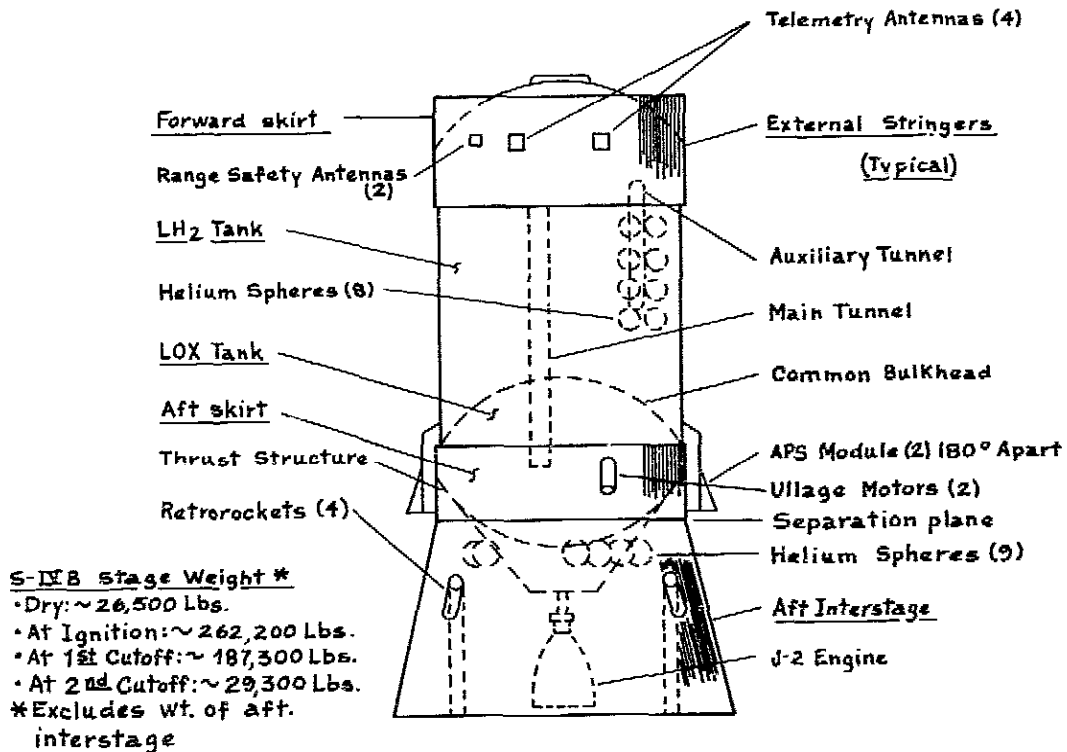 Telemetry Antennas (4)
Forward skirt
External Stringers
(Typical)
Range Safety Antennas
(2)
LH2 Tank
Auxiliary Tunnel
Helium Spheres (8)
Main Tunnel
LOX Tank
Common Bulkhead
Aft skirt
APS Module (2) 180° Apart
Thrust Structure
Ullage Motors (2)
Retrorockets (4)
Separation plane
Helium Spheres (9)
S-IVB Stage Weight *
•Dry:~26,500 Lbs.
•At Ignition:~262,200 Lbs.
•At 1st Cutoff:~187,300 Lbs.
•At 2nd Cutoff:~29,300 Lbs.
*Excludes wt. of aft.
interstage
Aft Interstage
J-2 Engine